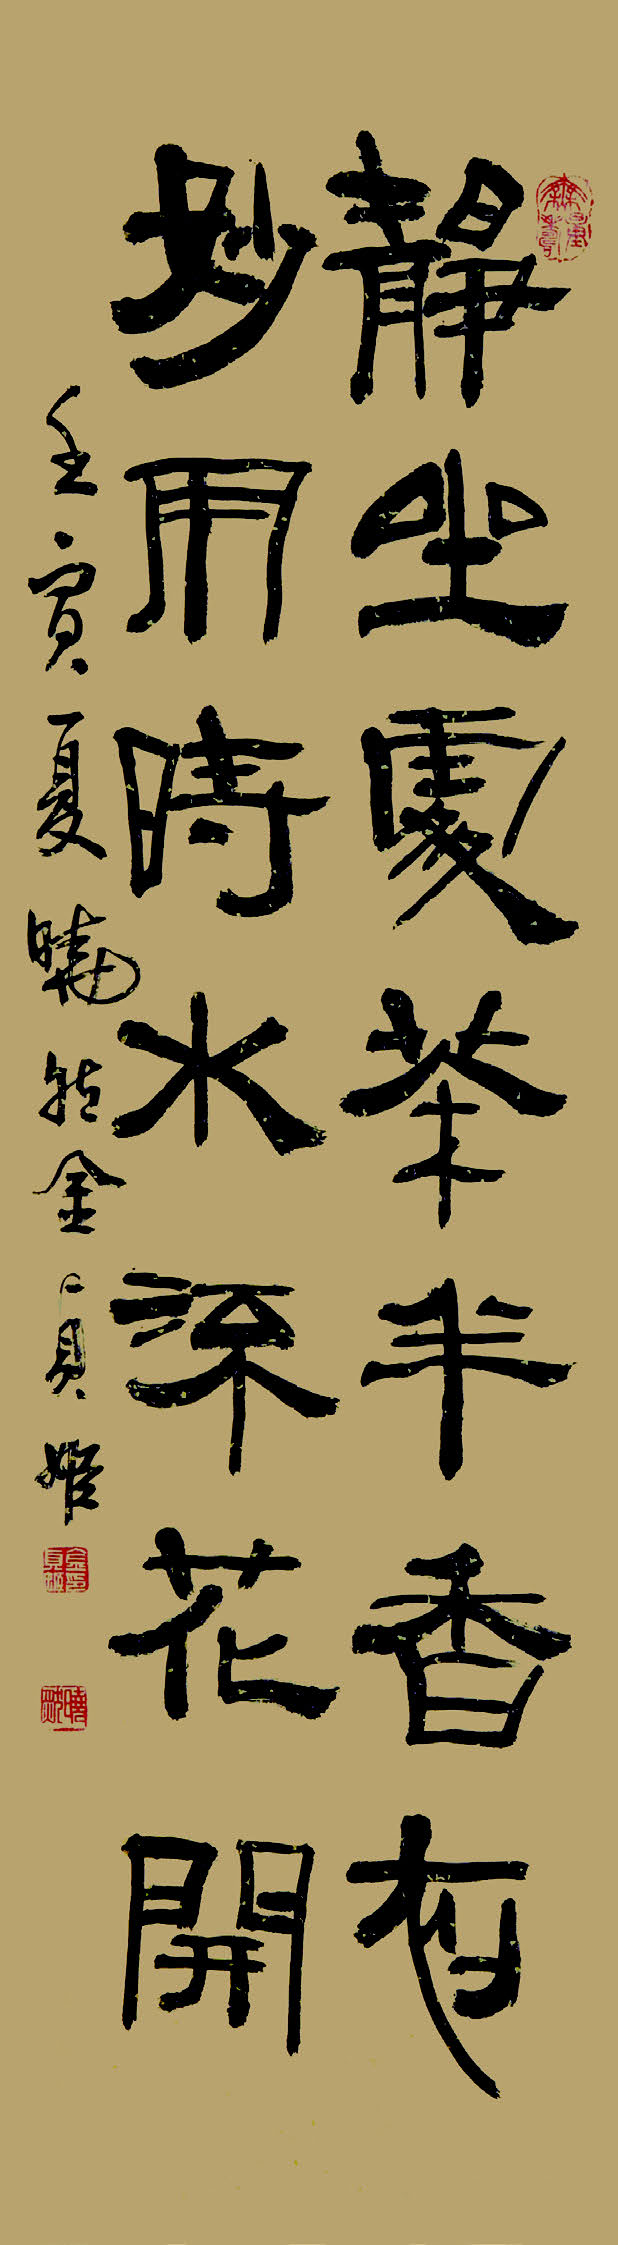 靜坐處茶半香初
妙用時水流花開
壬寅夏曉然金貞姬